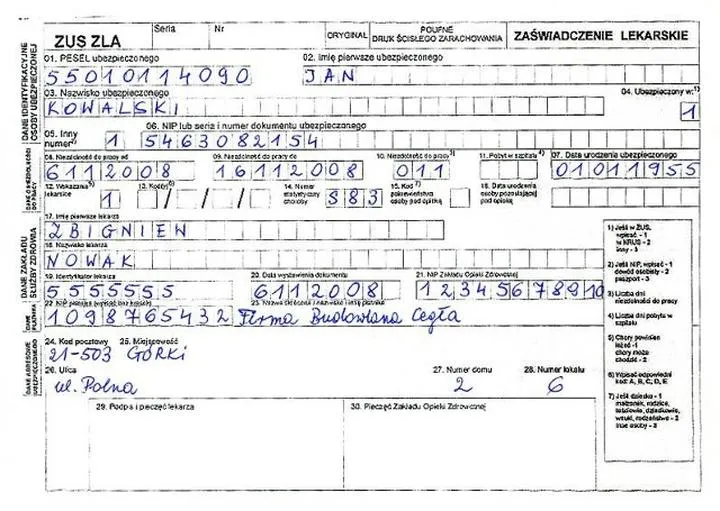 ZUS ZLA Seria Nr ORYGINAŁ POUFNE DRUK ŚCISŁEGO ZARACHOWANIA ZAŚWIADCZENIE LEKARSKIE
01. PESEL ubezpieczonego 02. Imię pierwsze ubezpieczonego
55010114090 JAN
03. Nazwisko ubezpieczonego 04. Ubezpieczony w:1)
KOWALSKI 1
05. Inny numer2) 06. NIP lub seria i numer dokumentu ubezpieczonego
1 5463082154
08. Niezdolność do pracy od 09. Niezdolność do pracy do 10. Niezdolność do pracy3) 11. Pobyt w szpitalu4) 07. Data urodzenia ubezpieczonego
6112008 16112008 011 01011955
12. Wskazania lekarskie5) 13. Kod(y)6) 14. Numer statystyczny choroby 15. Kod7) pokrewieństwa osoby pod opieką 16. Data urodzenia osoby pozostającej pod opieką
1 / / / S83
17. Imię pierwsze lekarza
ZBIGNIEW
18. Nazwisko lekarza
NOWAK
19. Identyfikator lekarza 20. Data wystawienia dokumentu 21. NIP Zakładu Opieki Zdrowotnej
5555555 6112008 12345678910
22. NIP płatnika (wpisać bez kresek) 23. Nazwa skrócona / nazwisko i imię płatnika
1098765432 Firma Budowlana Cegła
24. Kod pocztowy 25. Miejscowość
21-503 GÓRKI
26. Ulica 27. Numer domu 28. Numer lokalu
ul. Polna 2 6
29. Podpis i pieczęć lekarza 30. Pieczęć Zakładu Opieki Zdrowotnej
DANE IDENTYFIKACYJNE OSOBY UBEZPIECZONEJ
DANE O NIEZDOLNOŚCI DO PRACY
DANE ZAKŁADU SŁUŻBY ZDROWIA
DANE PŁATNIKA
DANE ADRESOWE UBEZPIECZONEGO
1) Jeśli w ZUS,
wpisać - 1
w KRUS - 2
inny - 3
2) Jeśli NIP, wpisać - 1
dowód osobisty - 2
paszport - 3
3) Liczba dni
niezdolności do pracy
4) Liczba dni pobytu w
szpitalu
5) Chory powinien
leżeć - 1
chory może
chodzić - 2
6) Wpisać odpowiedni
kod: A, B, C, D, E
7) Jeśli dziecko - 1
małżonek, rodzice,
teściowie, dziadkowie,
wnuki, rodzeństwo - 2
inne osoby - 3